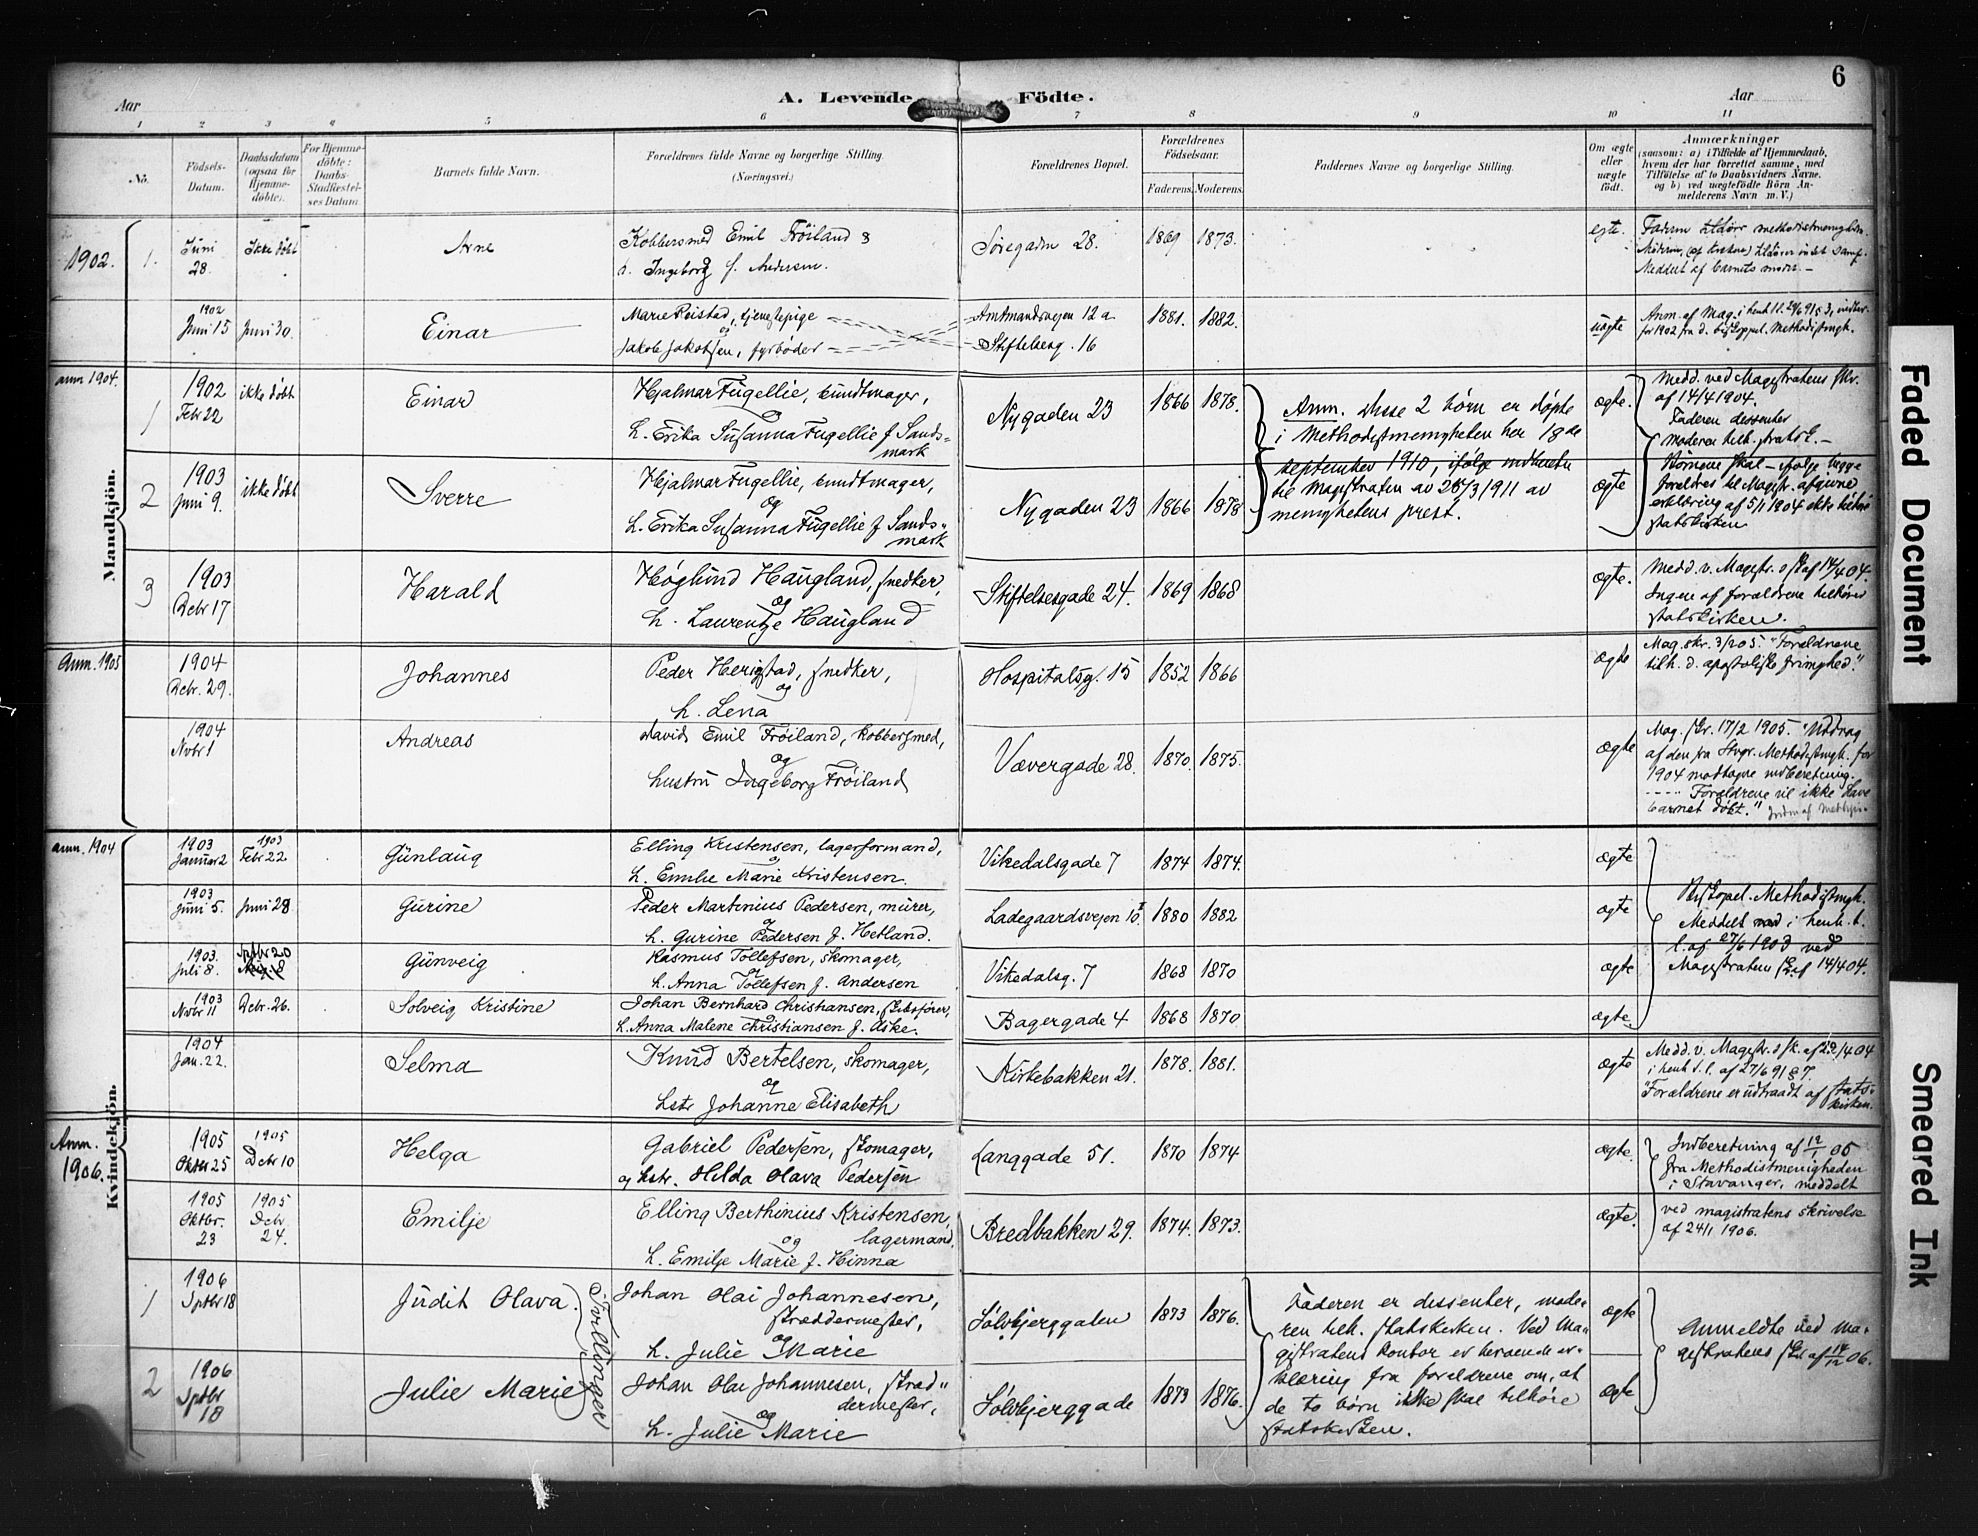 6
Aar
A. Levende
Födte.
Aar
1 2 3 4 5 6 7 8 9 10 11
No.
Födsels-
Datum.
Daabsdatum
(ogsaa for
Hjemme-
döbte).
For Hjemme-
döbte:
Daabs-
Stadfæstel-
ses Datum.
Barnets fulde Navn.
Forældrenes fulde Navne og borgerlige Stilling.
(Næringsvei.)
Forældrenes Bopæl.
Forældrenes
Födselsaar.
Faderens. Moderens.
Faddernes Navne og borgerlige Stilling.
Om ægte
eller
uægte
födt.
Anmærkninger
(saasom: a) i Tilfælde af Hjemmedaab,
hvem der har forrettet samme, med
Tilföielse af to Daabsvidners Navne.
og b) ved uægtefödte Börn An-
melderens Navn m. V.)
Mandkjön.
Kvindekjön.
1902. 1. Juni 28. Ikke døbt
Arne
Kobbersmed Emil Frøiland &
h. Ingeborg f. Andersen.
28. 1869 1873.
egte.
Meddelt af barnets moder. -
1902
Juni 15 Juni 30.
Einar
Marie Reistad, tjenestepige
og
Jakob Jakobsen, fyrbøder
Amtmandsvejen 12a
Stiftelsesg. 16
1881. 1882.
uægte
anm 1904.
1 1902
Febr 22 ikke døbt
Einar
Hjalmar Fugellie, bundtmager,
h. Erika Susanna Fugellie f Sands=
mark
Nygaden 23 1866 1878.
Anm. Disse 2 børn er døpte
i Methodistmenigheten her 18de
september 1910, ifølge indberetn
til Magistraten av 28/3 1911 av
menighetens prest.
ægte.
Medd. ved Magistratens skr.
af 14/4 1904.
Faderen dessenter
Moderen tilh. statsk. -
2 1903
Juni 9. ikke døbt
Sverre
Hjalmar Fugellie, bundtmager,
og
h. Erika Susanna Fugellie f Sands=
mark
Nygaden 23 1866 1878
ægte
Børnene skal - ifølge begge
foreldres til Magistr. afgivne
erklæring af 5/1 1904 ikke tilhøre
statskirken
3 1903
Decbr 17
Harald
Høglund Haugland, snedker,
og
h. Laurentze Haugland
Stiftelsesgade 24. 1869 1868
ægte.
Medd. v. Magistr. skr af 14/4 04.
Ingen af forældrene tilhører
statskirken.
Anm. 1905
1904
Decbr. 29.
Johannes
Peder Herigstad, snedker,
og
h. Lena
Hospitalsg. 15 1852 1866
ægte
Mag. skr. 3/2 05. "Forældrene
tilh. d. apostoliske frimghed."
1904
Novbr 1
Andreas
David Emil Frøiland, kobbersmed,
og
hustru Ingeborg Frøiland
Vævergade 28. 1870. 1875.
ægte
Mag. skr. 17/2 1905. "Uddrag
af den fra Stvgr. Methodistmgh. for
1904 modtagne indberetning.
- - - - - Forældrene vil ikke have
barnet døbt."
anm. 1904
1903
Januar 2
1903
Febr 22
Gunlaug
Elling Kristensen, lagerformand,
og
h. Emilie Marie Kristensen.
Vikedalsgade 7 1874 1874.
ægte
1903
Juni 5. Juni 28
Gurine
Peder Martinius Pedersen, murer,
og
h. Gurine Pedersen f. Hetland.
Ladegaardsvejen 10 I 1880 1882
ægte
Biskopel. Methodistmgh.
Meddelt i henh. t.
l. af 27/6 1903 ved
Magistraten skr af 14/4 04.
1903.
Juli 8. Sptbr 20
Gunveig
Rasmus Tollefsen, skomager,
og
h. Anna Tollefsen f. Andersen
Vikedalsg. 7 1868 1870
ægte
1903
Novbr 11 Decbr. 26.
Solveig Kristine
Johan Bernhard Christiansen, skibsfører,
h. Anna Malene Christiansen f. Aske.
Bagergade 4 1868 1870
ægte.
1904
Jan. 22.
Selma
Knud Bertelsen, skomager,
og
hstr Johanne Elisabeth
Kirkebakken 21. 1878. 1881.
ægte
Medd. v. Magistr. sk. af 29/4 04
i henh t. l. af 27/6 91 § 7.
"Forældrene er udtraadt af stats-
kirken.
Anm.
1906.
1905
Oktbr 25
1905
Dcbr 10
Helga
Gabriel Pedersen, skomager,
og hstr. Hilda Olava Pedersen
Langgade 51. 1870 1874
ægte.
Indberetning af
fra Methodistmenigheden
i Stavanger, meddelt
1905
Oktbr.
23
1905
Dcbr
24.
Emilje
Elling Berthinius Kristensen,
og lagermand.
h. Emilje Marie f. Hinna
Bredbakken 29. 1874. 1873.
ægte.
ved magistratens skrivelse
af 24/1 1906.
1 1906
Sptbr 18
Judit Olava.
Tvillinger
Johan Olai Johannesen,
skræddermester,
og
h. Julie Marie
Sølvbjerggaden 1873 1876.
Faderen er dessenter, mode=
ren tilh. statskirken. Ved Ma=
gistratens kontor er beroende er=
klæring fra forældrene om, at
de to børn ikke skal tilhøre
statskirken.
ægte
Anmeldte ved ma-
gistratens skr af 14/12 06.
2 1906
Sptbr
18
Julie Marie
Johan Olai Johannesen, skræd=
dermester,
og
h. Julie Marie
Sølvbjerggade 1873 1876.
ægte
Faded Document
Smeared Ink